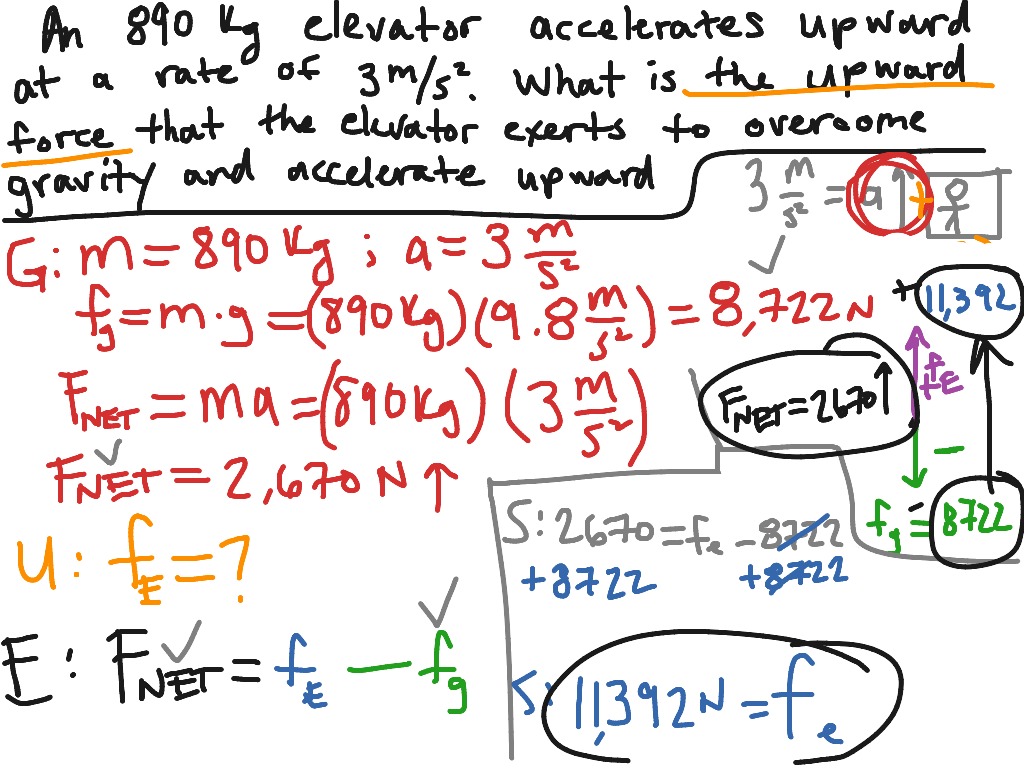 An 890 Kg elevator accelerates upward
at a rate of 3 m/s². What is the upward
force that the elevator exerts to overcome
gravity and accelerate upward
3 m/s² = a ↑ +
G: m = 890 Kg ; a = 3 m/s²
fg = m·g = (890 Kg)(9.8 m/s²) = 8,722 N
+ 11,392
FNET = ma = (890 Kg) (3 m/s²)
FNET = 2670 ↑
fE
FNET = 2,670 N ↑
−
fg = 8722
S: 2670 = fe − 8722
+8722 +8722
U: fE = ?
E: FNET = fE − fg
S: 11,392 N = fe